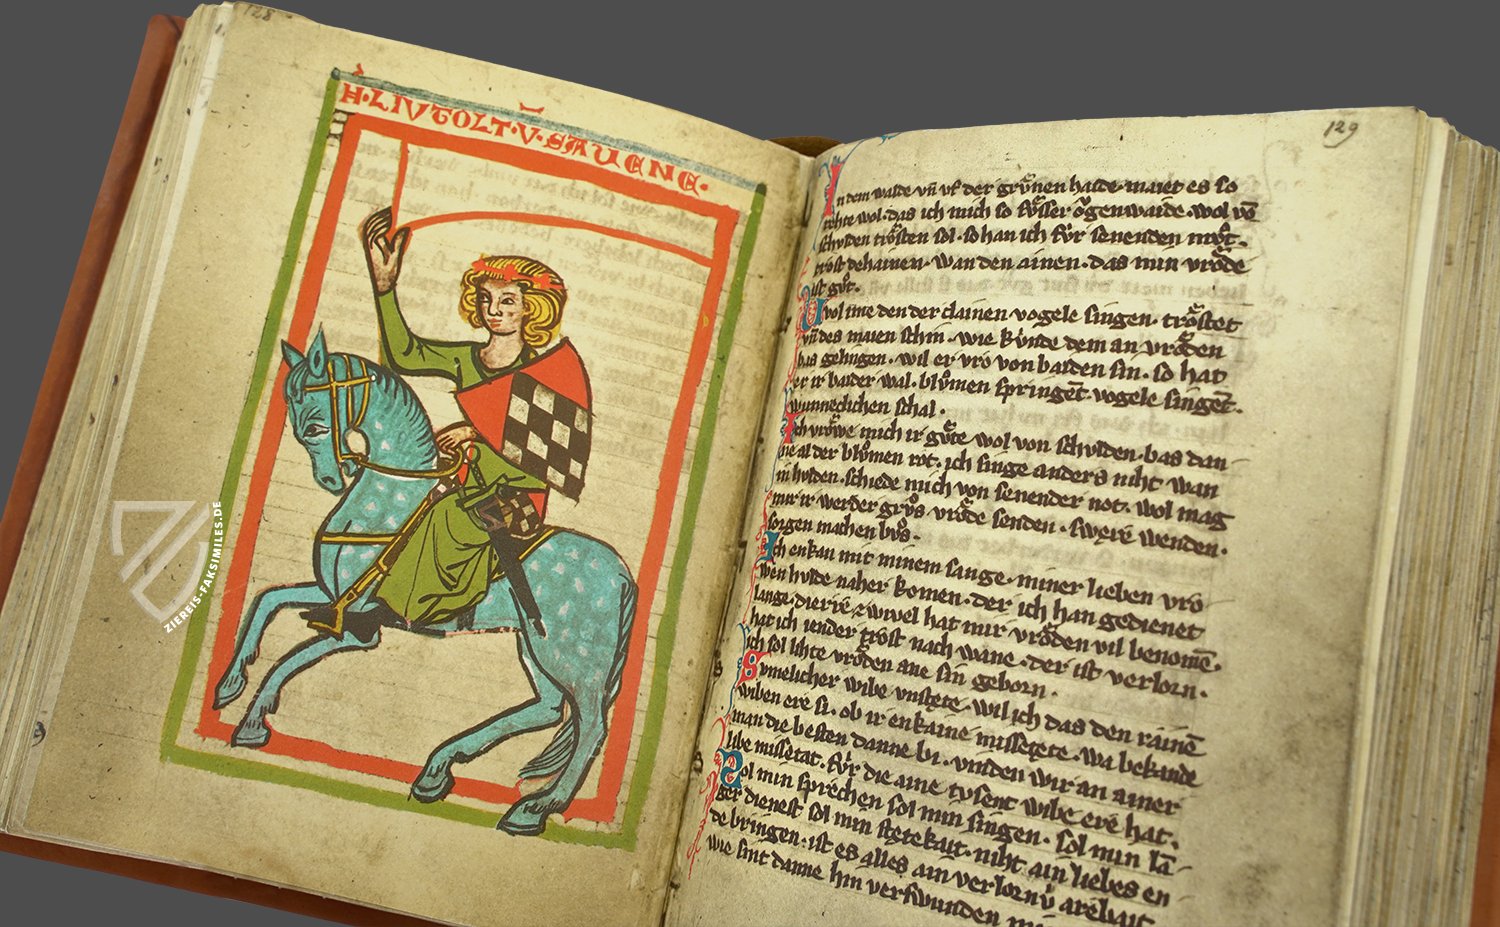 128
H·LIVTOLT·V·SAVENE·
129
In dem walde vn̄ vf der grůnen haide· maiet es so
rehte wol· das ich mich so sůsser ǒgenwaide· wol vō
schvlden trǒsten sol· so han ich fůr senenden můt·
trost dehainen· wan den ainen· das min vrǒde
ist gůt·
Swol ime den der clainen· vogele singen· trǒstet
vn̄ des maien schin· wie kůnde dem an vrǒden
bas gelingen· wil er vro von baiden sin· so hat
er ir baider wal· blůmen springēt· vogele singēt·
wunneclichen schal·
Ich vrǒwe mich ir gůte wol von schvlden· bas dan-
ne al der blůmen rot· ich singe anders niht wan
in hvlden· schiede mich von senender not· wol mag
mir ir werder grůs· vrǒde senden· swere wenden·
sorgen machen bůs·
Ich enkan mit minem sange· miner lieben vro
wen hvlde naher komen· der ich han gedienet
lange· die rie zwivel hat mir vrǒden vil benomē·
hat ich iender trost nach wane· der ist verlorn·
ich sol lihte vrǒden ane sin geborn·
Svmelicher wibe vnstete· wil ich das den rainē
wiben ere si· ob ir enkaine missetete· wa bekande
man die besten danne bi· vinden wir an ainer
libe missetat· fůr die aine tvsent wibe ere hat·
Sol min sprechen sol min singen· sol min lā-
ger dienest sol min stetekait· niht ain liebes en
de bringen· ist es alles ain verlornv arebait
wie sint danne hin verswunden
ZIEREIS-FAKSIMILES.DE